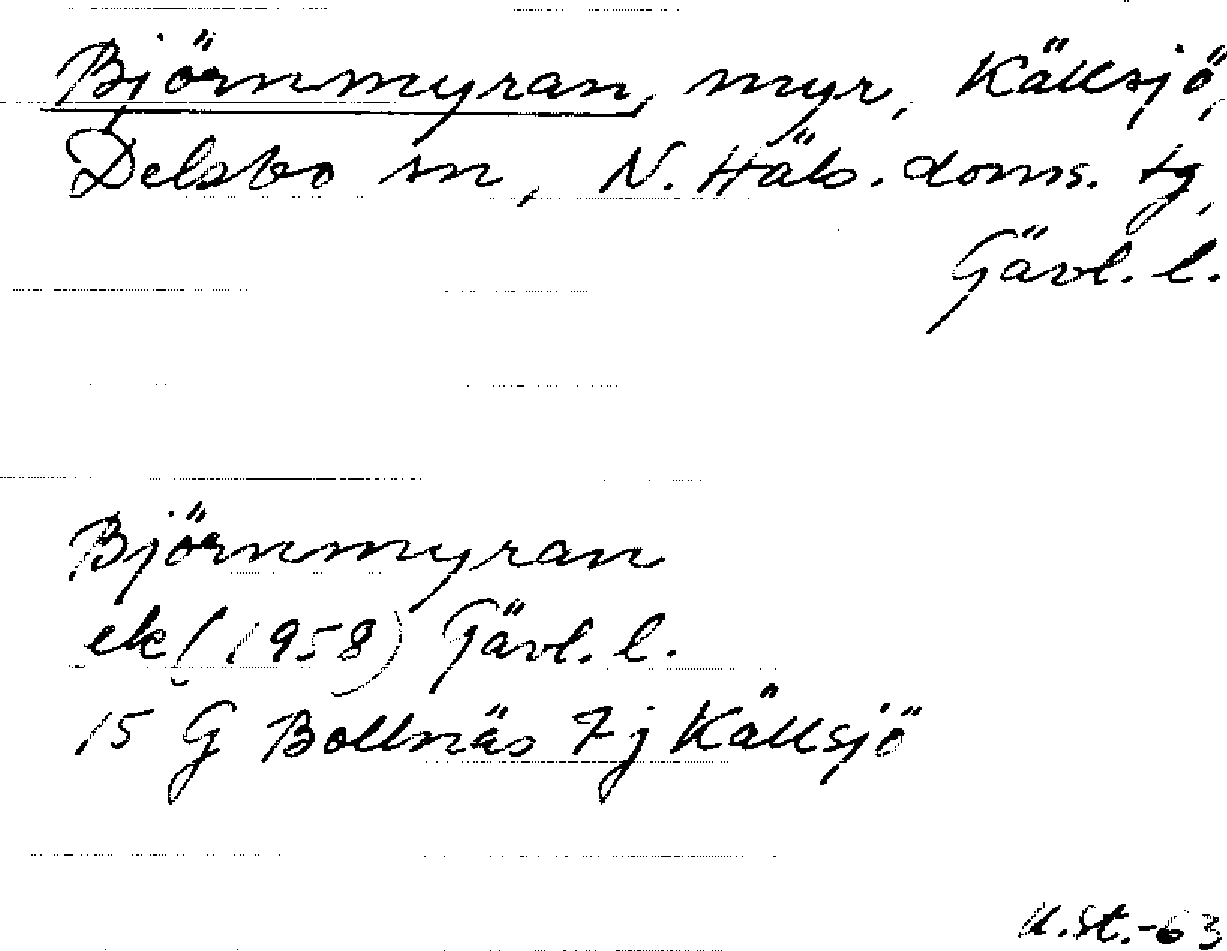 Björnmyran, myr, Källsjö,
Delsbo sn, N. Häls. doms. tg,
Gävl. l.
Björnmyran
ek (1958) Gävl. l.
15 G Bollnäs 7j Källsjö
U.St.-63